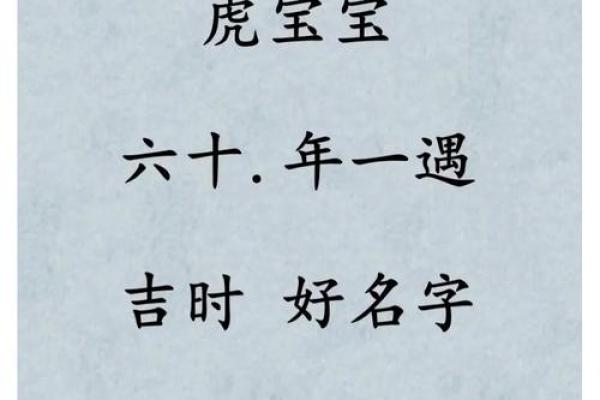 虎宝宝
六十.年一遇
吉时 好名字